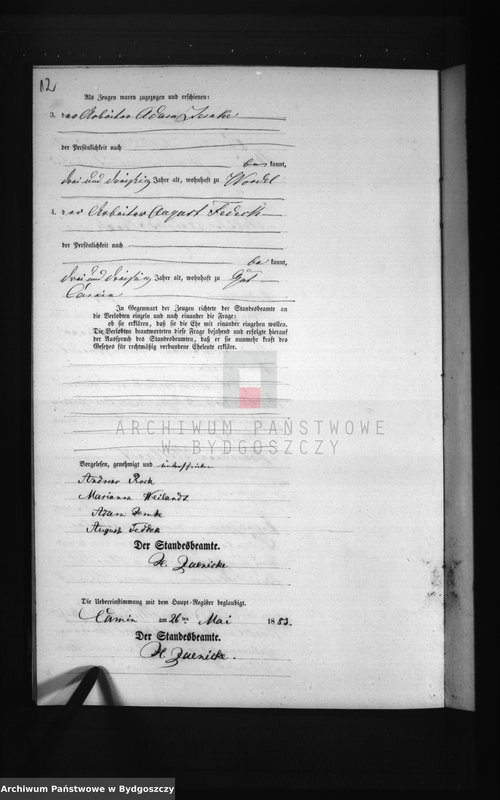 12
Als Zeugen waren zugezogen und erschienen:
3. der Arbeiter Adam Zemke
der Persönlichkeit nach
be kannt,
drei und dreißig Jahre alt, wohnhaft zu Wordel
4. der Arbeiter August Feddek
der Persönlichkeit nach
be kannt,
drei und dreißig Jahre alt, wohnhaft zu Gut
Camin
In Gegenwart der Zeugen richtete der Standesbeamte an
die Verlobten einzeln und nach einander die Frage:
ob sie erklären, daß sie die Ehe mit einander eingehen wollen.
Die Verlobten beantworteten diese Frage bejahend und erfolgte hierauf
der Ausspruch des Standesbeamten, daß er sie nunmehr kraft des
Gesetzes für rechtmäßig verbundene Eheleute erkläre.
ARCHIWUM PAŃSTWOWE
W BYDGOSZCZY
Vorgelesen, genehmigt und unterschrieben
Andreas Rock
Marianna Weilandt
Adam Zemke
August Feddek
Der Standesbeamte.
H. Zaenicke
Die Uebereinstimmung mit dem Haupt-Register beglaubigt.
Camin am 26 ten Mai 1883.
Der Standesbeamte.
H. Zaenicke.
Archiwum Państwowe w Bydgoszczy